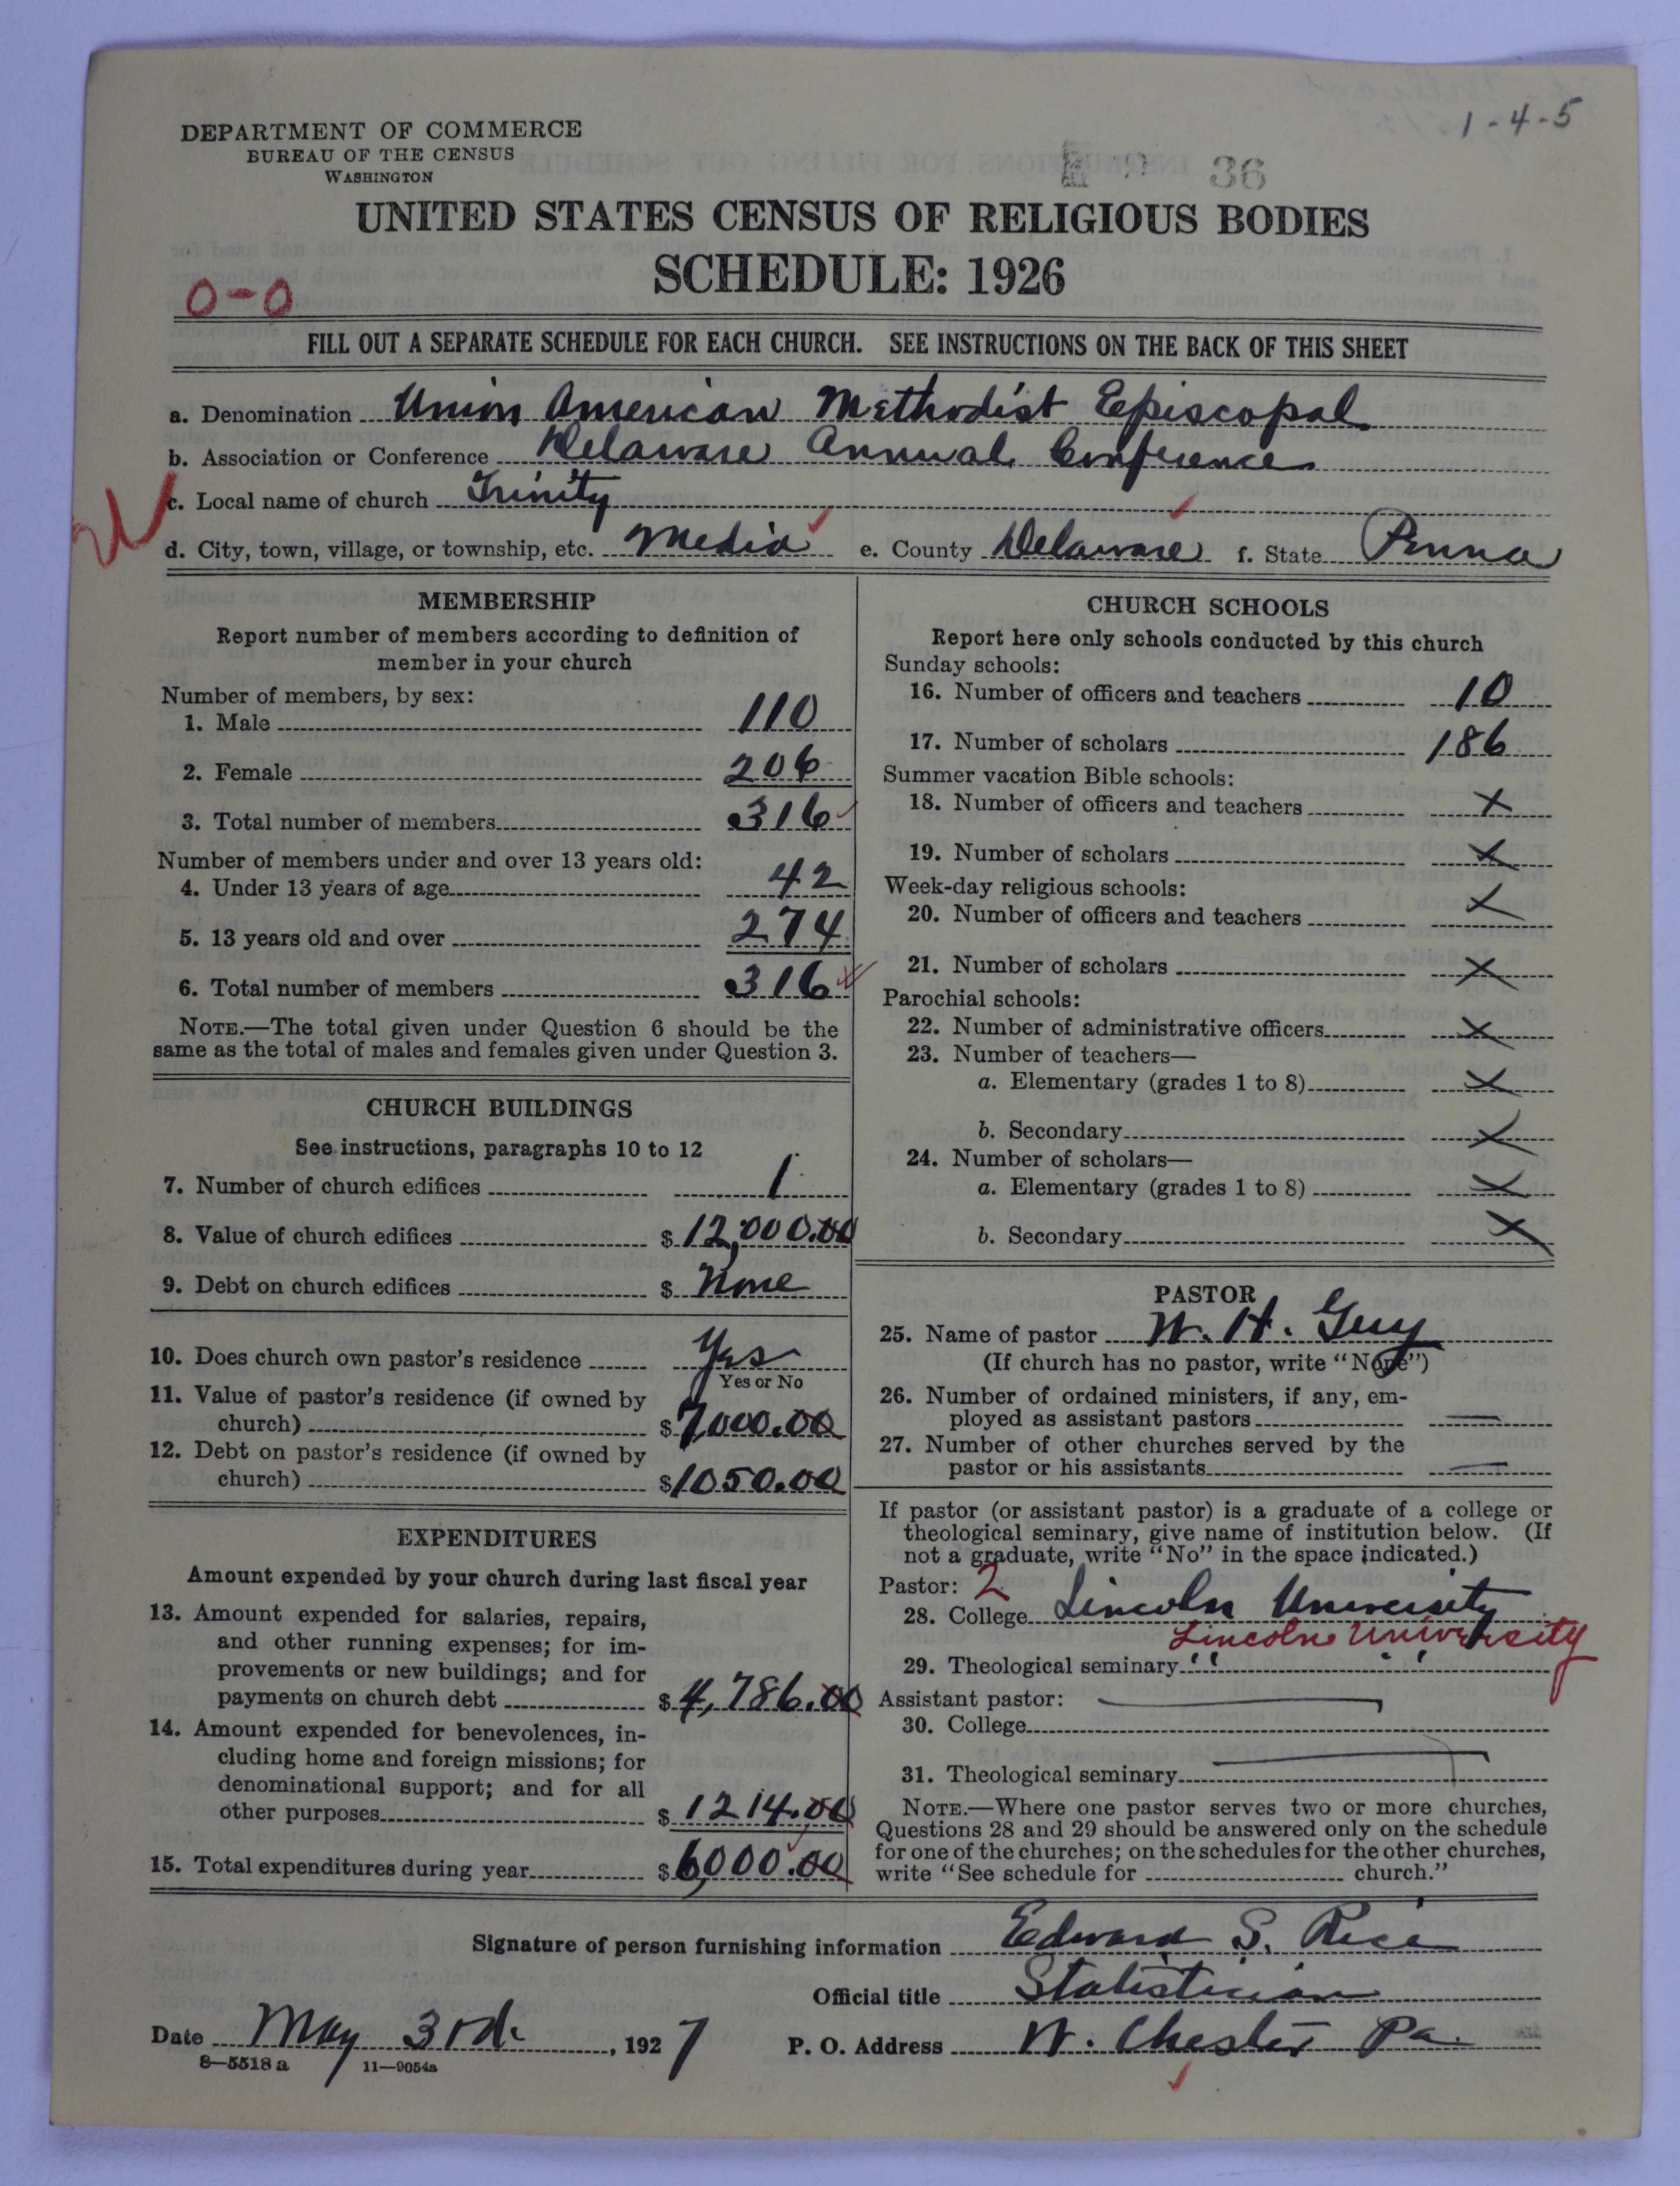 1-4-5
DEPARTMENT OF COMMERCE
BUREAU OF THE CENSUS
WASHINGTON
36
UNITED STATES CENSUS OF RELIGIOUS BODIES
SCHEDULE: 1926
0-0
FILL OUT A SEPARATE SCHEDULE FOR EACH CHURCH. SEE INSTRUCTIONS ON THE BACK OF THIS SHEET
a. Denomination Union American Methodist Episcopal
b. Association or Conference Delaware Annual Conference
c. Local name of church Trinity
d. City, town, village, or township, etc. Media e. County Delaware f. State Penna
MEMBERSHIP
Report number of members according to definition of
member in your church
Number of members, by sex:
1. Male 110
2. Female 206
3. Total number of members 316
Number of members under and over 13 years old:
4. Under 13 years of age 42
5. 13 years old and over 274
6. Total number of members 316
NOTE.—The total given under Question 6 should be the
same as the total of males and females given under Question 3.
CHURCH BUILDINGS
See instructions, paragraphs 10 to 12
7. Number of church edifices 1
8. Value of church edifices $ 12,000.00
9. Debt on church edifices $ None
10. Does church own pastor's residence Yes
Yes or No
11. Value of pastor's residence (if owned by
church) $ 7,000.00
12. Debt on pastor's residence (if owned by
church) $ 1050.00
EXPENDITURES
Amount expended by your church during last fiscal year
13. Amount expended for salaries, repairs,
and other running expenses; for im-
provements or new buildings; and for
payments on church debt $ 4,786.00
14. Amount expended for benevolences, in-
cluding home and foreign missions; for
denominational support; and for all
other purposes $ 1214.00
15. Total expenditures during year $ 6,000.00
CHURCH SCHOOLS
Report here only schools conducted by this church
Sunday schools:
16. Number of officers and teachers 10
17. Number of scholars 186
Summer vacation Bible schools:
18. Number of officers and teachers x
19. Number of scholars x
Week-day religious schools:
20. Number of officers and teachers x
21. Number of scholars x
Parochial schools:
22. Number of administrative officers x
23. Number of teachers—
a. Elementary (grades 1 to 8) x
b. Secondary x
24. Number of scholars—
a. Elementary (grades 1 to 8) x
b. Secondary x
PASTOR
25. Name of pastor W. H. Guy
(If church has no pastor, write "None")
26. Number of ordained ministers, if any, em-
ployed as assistant pastors —
27. Number of other churches served by the
pastor or his assistants —
If pastor (or assistant pastor) is a graduate of a college or
theological seminary, give name of institution below. (If
not a graduate, write "No" in the space indicated.)
Pastor: 2
28. College Lincoln University
Lincoln University
29. Theological seminary " "
Assistant pastor: —
30. College
31. Theological seminary —
NOTE.—Where one pastor serves two or more churches,
Questions 28 and 29 should be answered only on the schedule
for one of the churches; on the schedules for the other churches,
write "See schedule for church."
Signature of person furnishing information Edward S. Rice
Official title Statistician
Date May 3rd. , 1927 P. O. Address W. Chester Pa.
8—5518 a 11—9054a